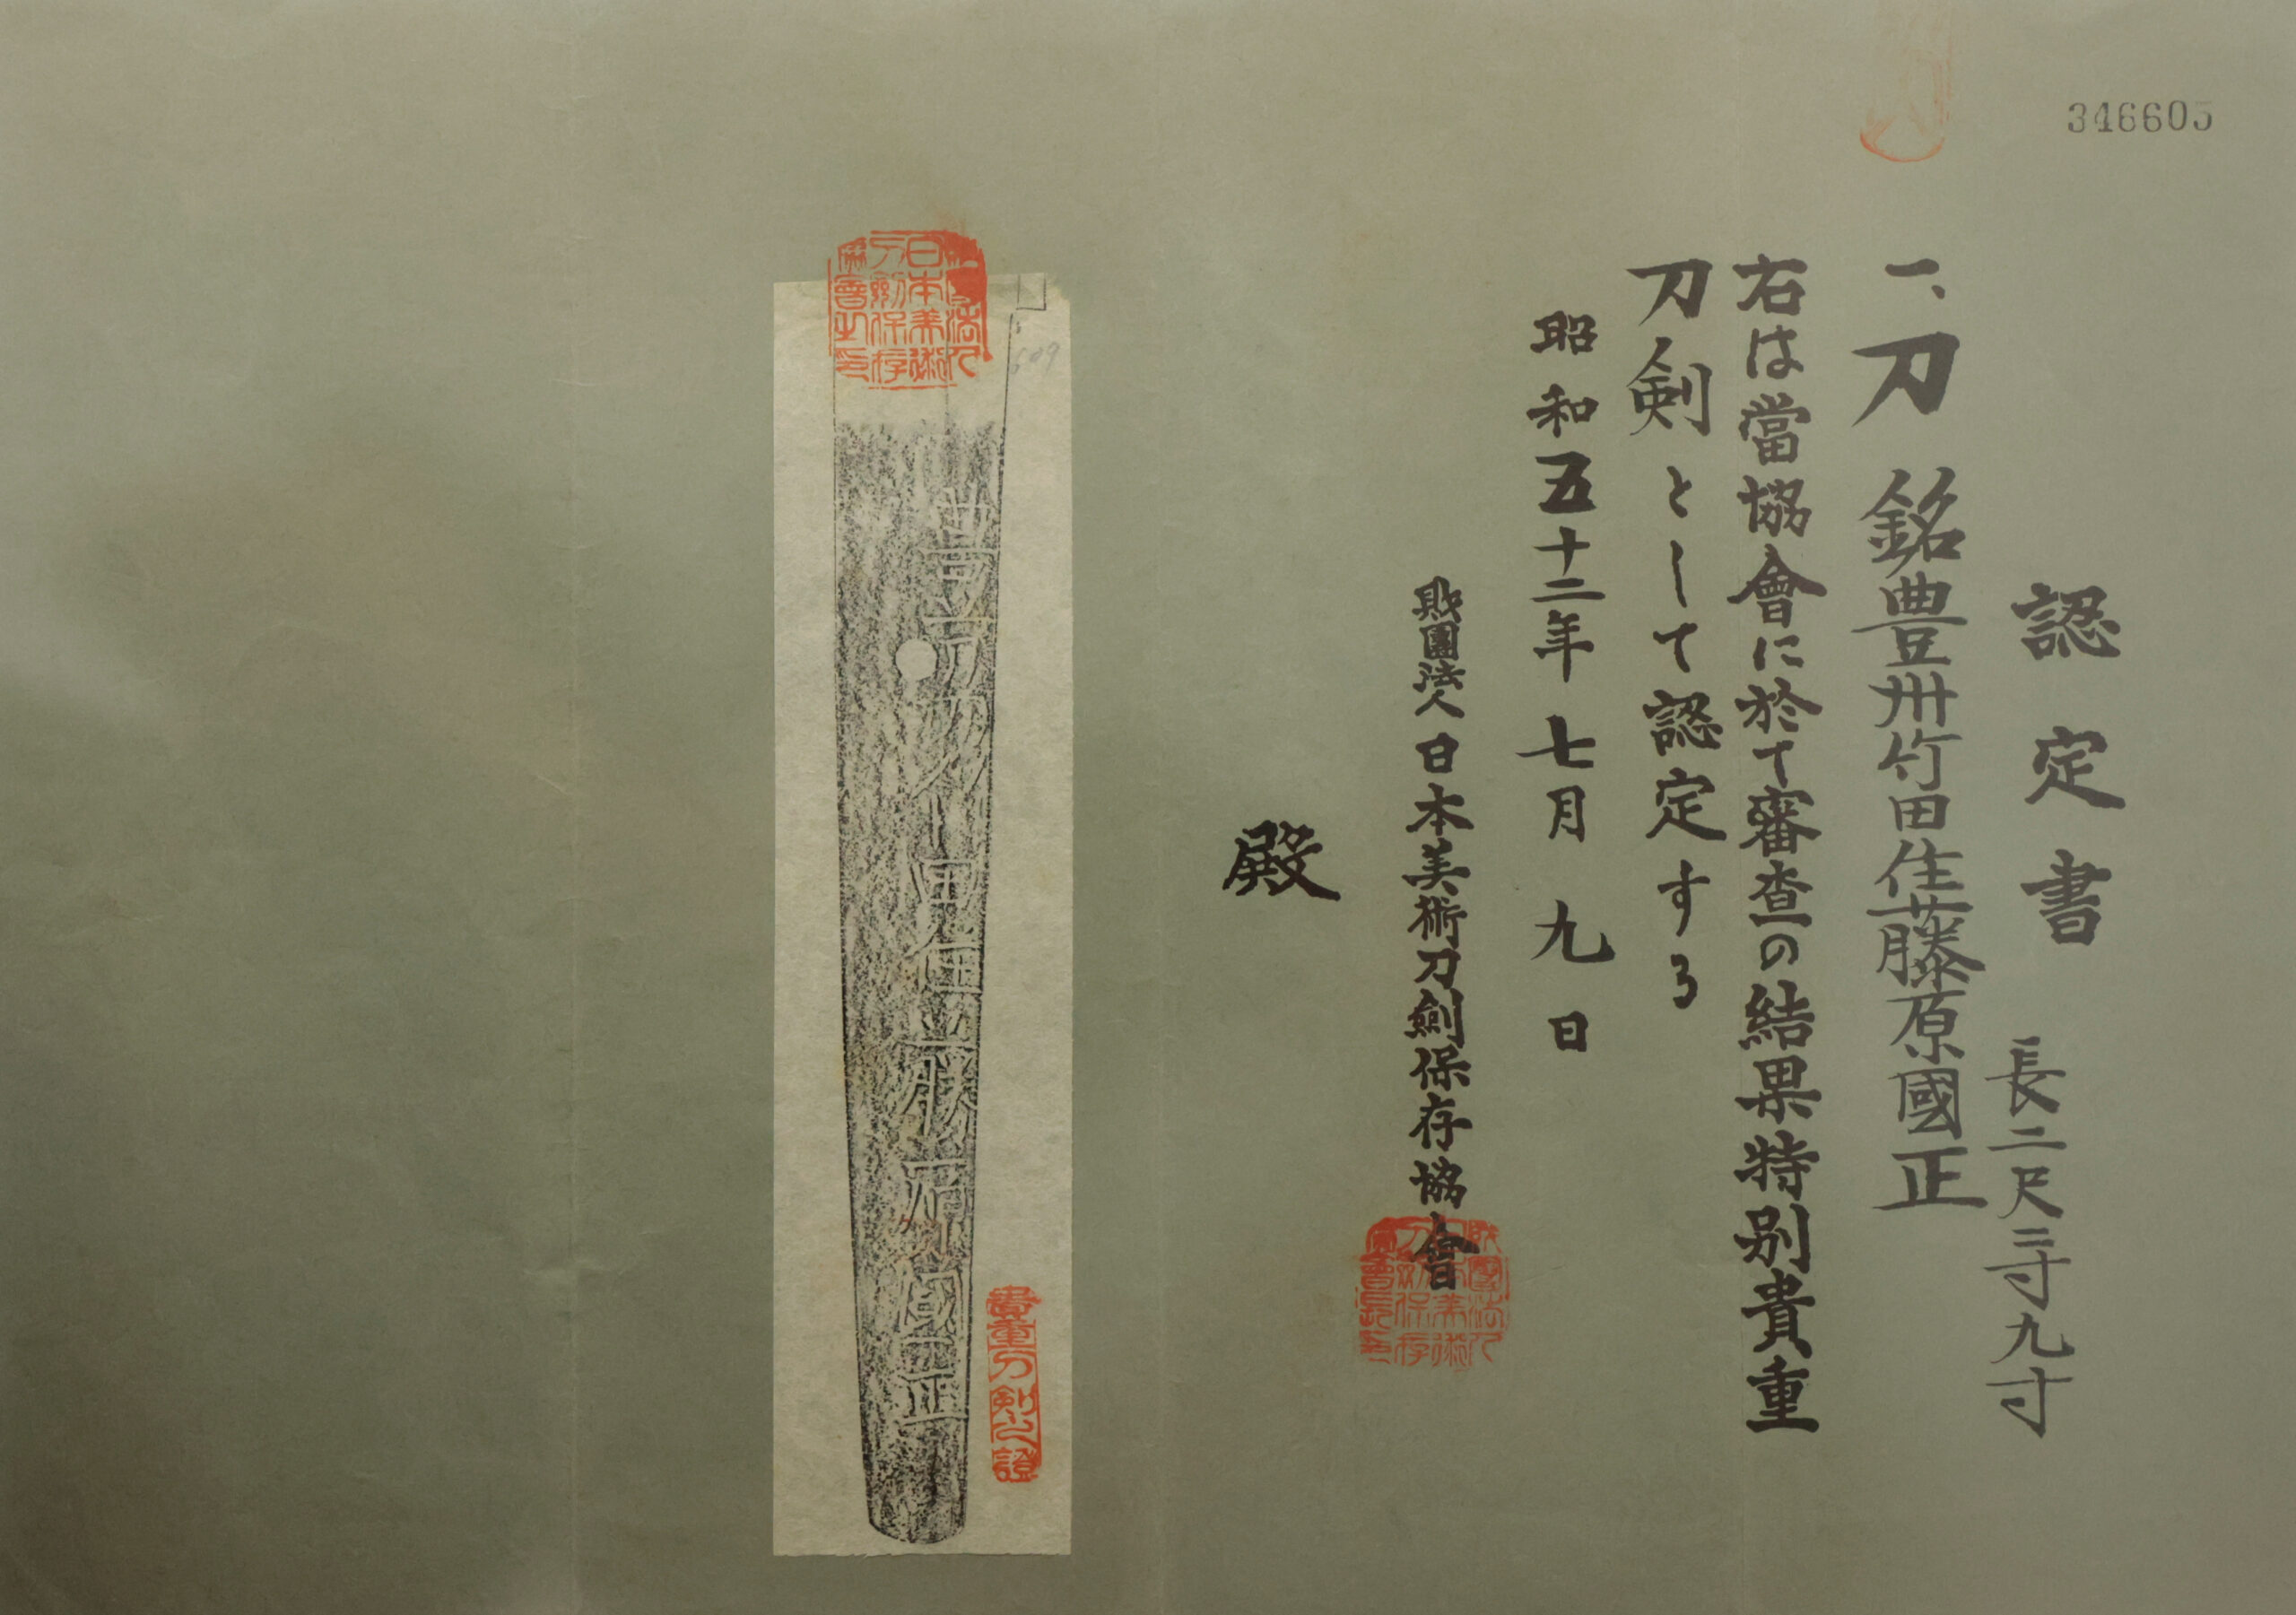 346605
認定書
長二尺三寸九寸
一、刀 銘豊卅竹田住藤原國正
右は當協會に於て審査の結果特別貴重
刀剣として認定する
昭和五十二年七月九日
財團法人日本美術刀劍保存協會
殿
財團法人日本美術刀劍保存協會長印
田住藤原國正
貴重刀剣之證